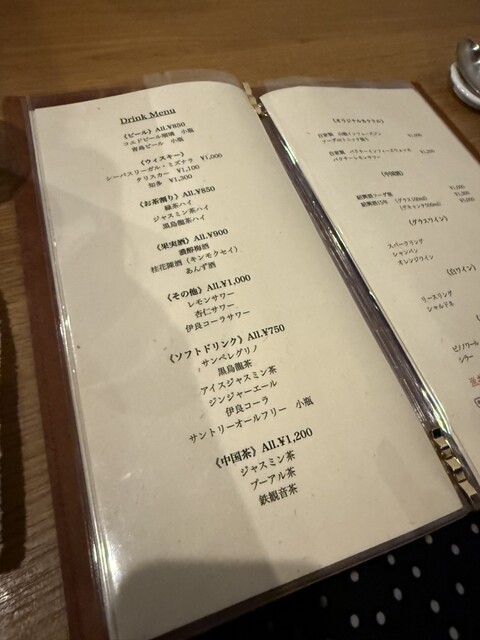 Drink Menu
《ビール》All.¥850
コエドビール瑠璃 小瓶
青島ビール 小瓶
《ウィスキー》
シーバスリーガル・ミズナラ ¥1,000
タリスカー ¥1,100
知多 ¥1,300
《お茶割り》All.¥850
緑茶ハイ
ジャスミン茶ハイ
黒烏龍茶ハイ
《果実酒》All.¥900
濃醇梅酒
桂花陳酒（キンモクセイ）
あんず酒
《その他》All.¥1,000
レモンサワー
杏仁サワー
伊良コーラサワー
《ソフトドリンク》All.¥750
サンペレグリノ
黒烏龍茶
アイスジャスミン茶
ジンジャーエール
伊良コーラ
サントリーオールフリー 小瓶
《中国茶》All.¥1,200
ジャスミン茶
プーアル茶
鉄観音茶
《オリジナルカクテル》
自家製
自家製
《中国酒》
《グラスワイン》
スパークリング
シャンパン
オレンジワイン
《白ワイン》
リースリング
シャルドネ
ピノノワール
シラー